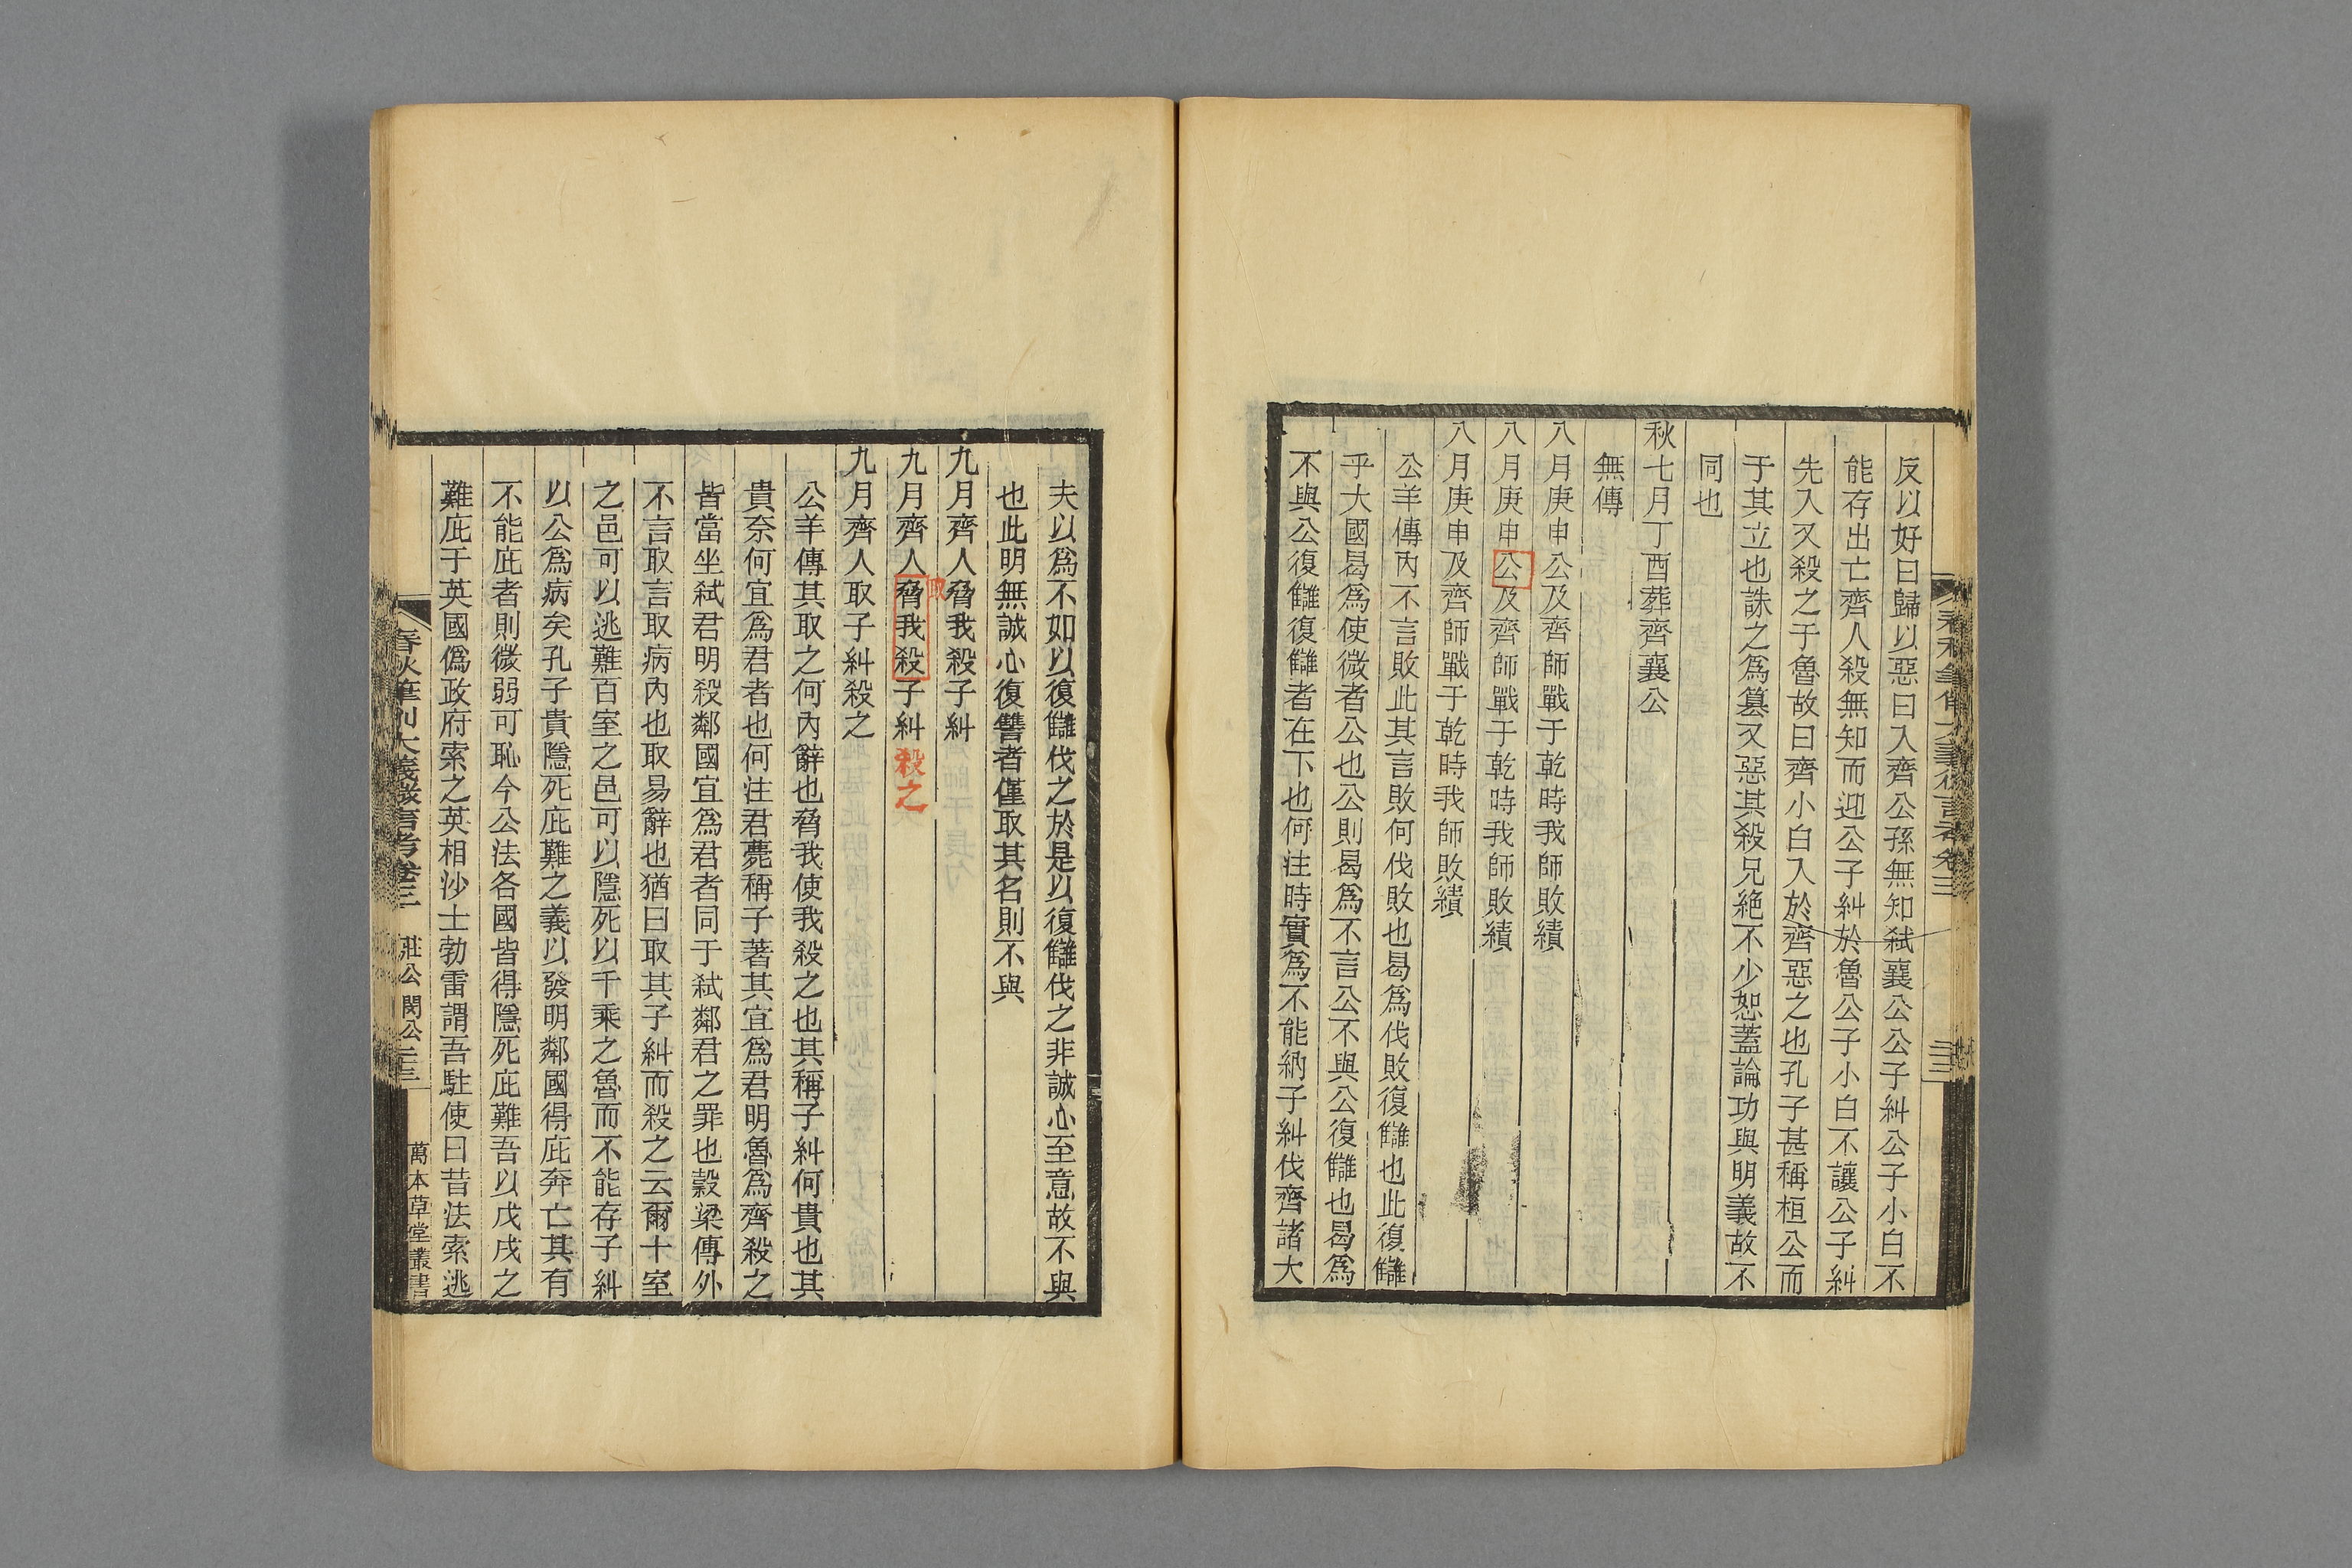 反以好曰歸以惡曰入齊公孫無知弑襄公公子糾公子小白不
能存出亡齊人殺無知而迎公子糾於魯公子小白不讓公子糾
先入又殺之于魯故曰齊小白入於齊惡之也孔子甚稱桓公而
于其立也誅之爲簒又惡其殺兄絶不少恕蓋論功與明義故不
同也
秋七月丁酉葬齊襄公
無傳
八月庚申公及齊師戰于乾時我師敗績
八月庚申公及齊師戰于乾時我師敗績
八月庚申及齊師戰于乾時我師敗績
公羊傳內不言敗此其言敗何伐敗也曷爲伐敗復讎也此復讎
乎大國曷爲使微者公也公則曷爲不言公不與公復讎也曷爲
不與公復讎復讎者在下也何注時實爲不能納子糾伐齊諸大
夫以爲不如以復讎伐之於是以復讎伐之非誠心至意故不與
也此明無誠心復讐者僅取其名則不與
九月齊人脅我殺子糾
九月齊人脅我殺子糾殺之
取
九月齊人取子糾殺之
公羊傳其取之何內辭也脅我使我殺之也其稱子糾何貴也其
貴奈何宜爲君者也何注君薨稱子著其宜爲君明魯爲齊殺之
皆當坐弑君明殺鄰國宜爲君者同于弑鄰君之罪也穀梁傳外
不言取言取病內也取易辭也猶曰取其子糾而殺之云爾十室
之邑可以逃難百室之邑可以隱死以千乘之魯而不能存子糾
以公爲病矣孔子貴隱死庇難之義以發明鄰國得庇奔亡其有
不能庇者則微弱可恥今公法各國皆得隱死庇難吾以戊戌之
難庇于英國僞政府索之英相沙士勃雷謂吾駐使曰昔法索逃
春秋筆削大義微言考卷三 莊公 閔公 三三
萬木草堂叢書